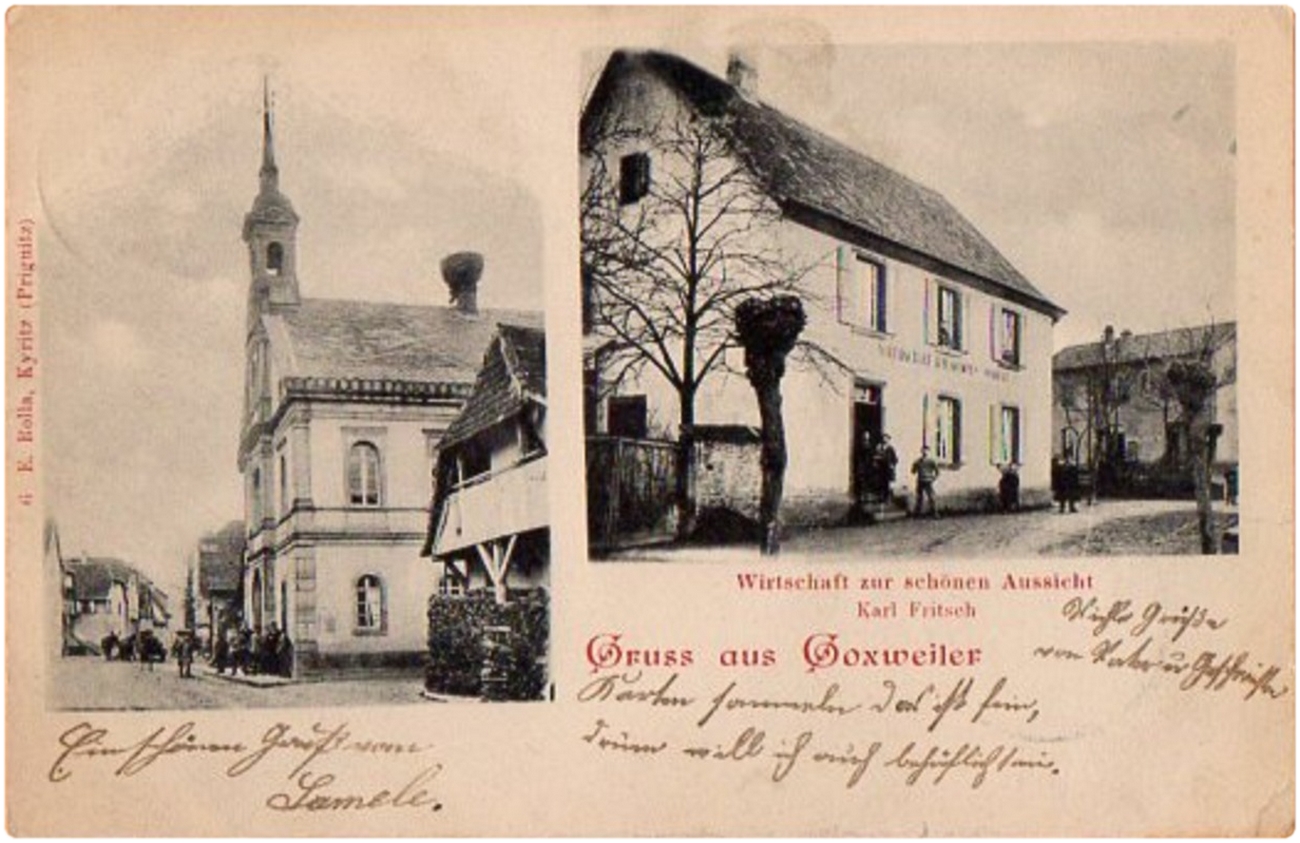 6 E. Rolla, Kyritz (Prignitz)
Wirtschaft zur schönen Aussicht
Karl Fritsch
Gruss aus Goxweiler
Viele Grüße
von Vater u Geschwister
Karten sammeln das ist fein,
drum will ich auch behülflich sein.
Ein schönen Gruß vom